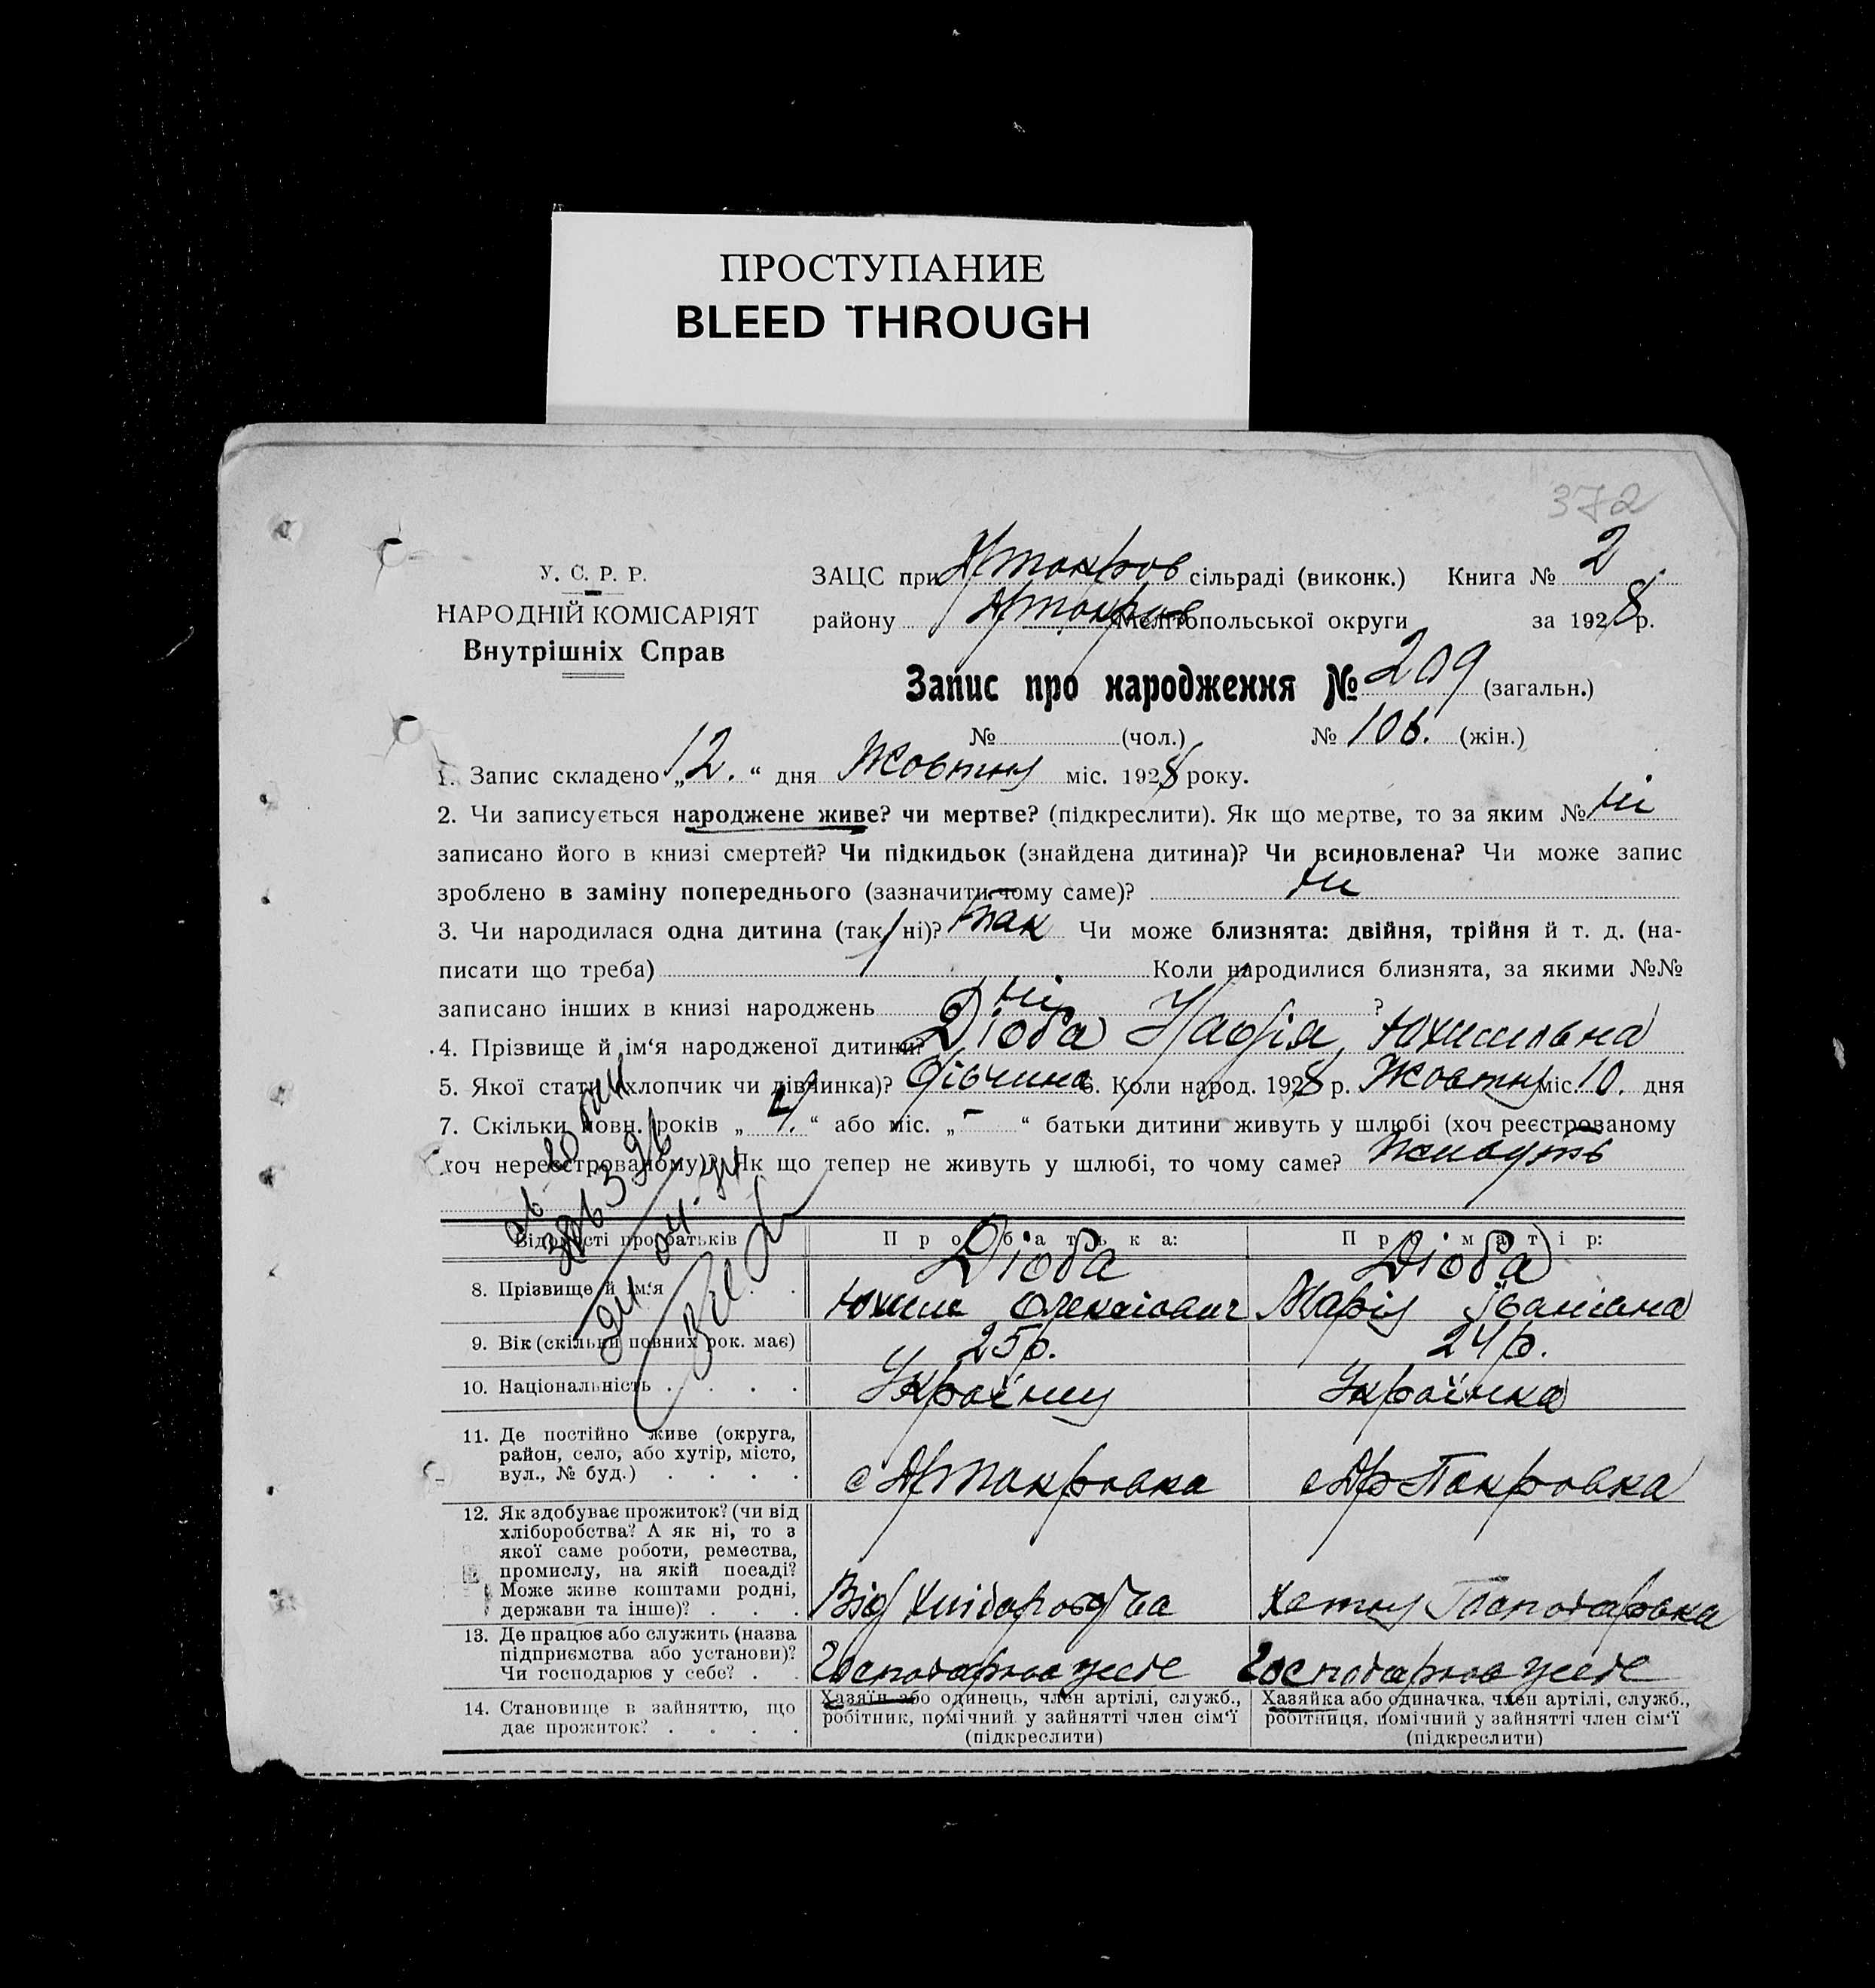 ПРОСТУПАНИЕ
BLEED THROUGH
372
У. С. Р. Р.
НАРОДНІЙ КОМІСАРІЯТ
Внутрішніх Справ
ЗАЦС при сільраді (виконк.) Книга № 2
району Мелітопольської округи за 1928 р.
Запис про народження № 209 (загальн.)
№ (чол.) № 106. (жін.)
1. Запис складено „12.“ дня Жовтня міс. 1928 року.
2. Чи записується народжене живе? чи мертве? (підкреслити). Як що мертве, то за яким № ні
записано його в книзі смертей? Чи підкидьок (знайдена дитина)? Чи всиновлена? Чи може запис
зроблено в заміну попереднього (зазначити чому саме)? ні
3. Чи народилася одна дитина (так, ні)? так Чи може близнята: двійня, трійня й т. д. (на-
писати що треба) Коли народилися близнята, за якими №№
записано інших в книзі народжень ні ?
4. Прізвище й ім‘я народженої дитини? Дзюба Юхимівна
5. Якої стати (хлопчик чи дівчинка)? Дівчина 6. Коли народ. 1928 р. Жовтня міс. 10. дня
7. Скільки повн. років „4.“ або міс. „-“ батьки дитини живуть у шлюбі (хоч реєстрованому
хоч нереєстрованому)? Як що тепер не живуть у шлюбі, то чому саме? Живуть
Відомості про батьків Про батька: Про матір:
8. Прізвище й ім‘я Дзюба Юхим Олексіович Дзюба Марія Іванівна
9. Вік (скільки повних рок. має) 25 р. 24 р.
10. Національність Українец Українка
11. Де постійно живе (округа,
район, село, або хутір, місто,
вул., № буд.) с Покровка
12. Як здобуває прожиток? (чи від
хліборобства? А як ні, то з
якої саме роботи, ремества,
промислу, на якій посаді?
Може живе коштами родні,
держави та інше)? Від Хліборобства Хатня Господарька
13. Де працює або служить (назва
підприємства або установи)?
Чи господарює у себе? Господарює у себе Господарює у себе
14. Становище в зайняттю, що
дає прожиток?
Хазяїн або одинець, член артілі, служб.,
робітник, помічний у зайнятті член сім‘ї
(підкреслити)
Хазяйка або одиначка, член артілі, служб.,
робітниця, помічний у зайнятті член сім‘ї
(підкреслити)